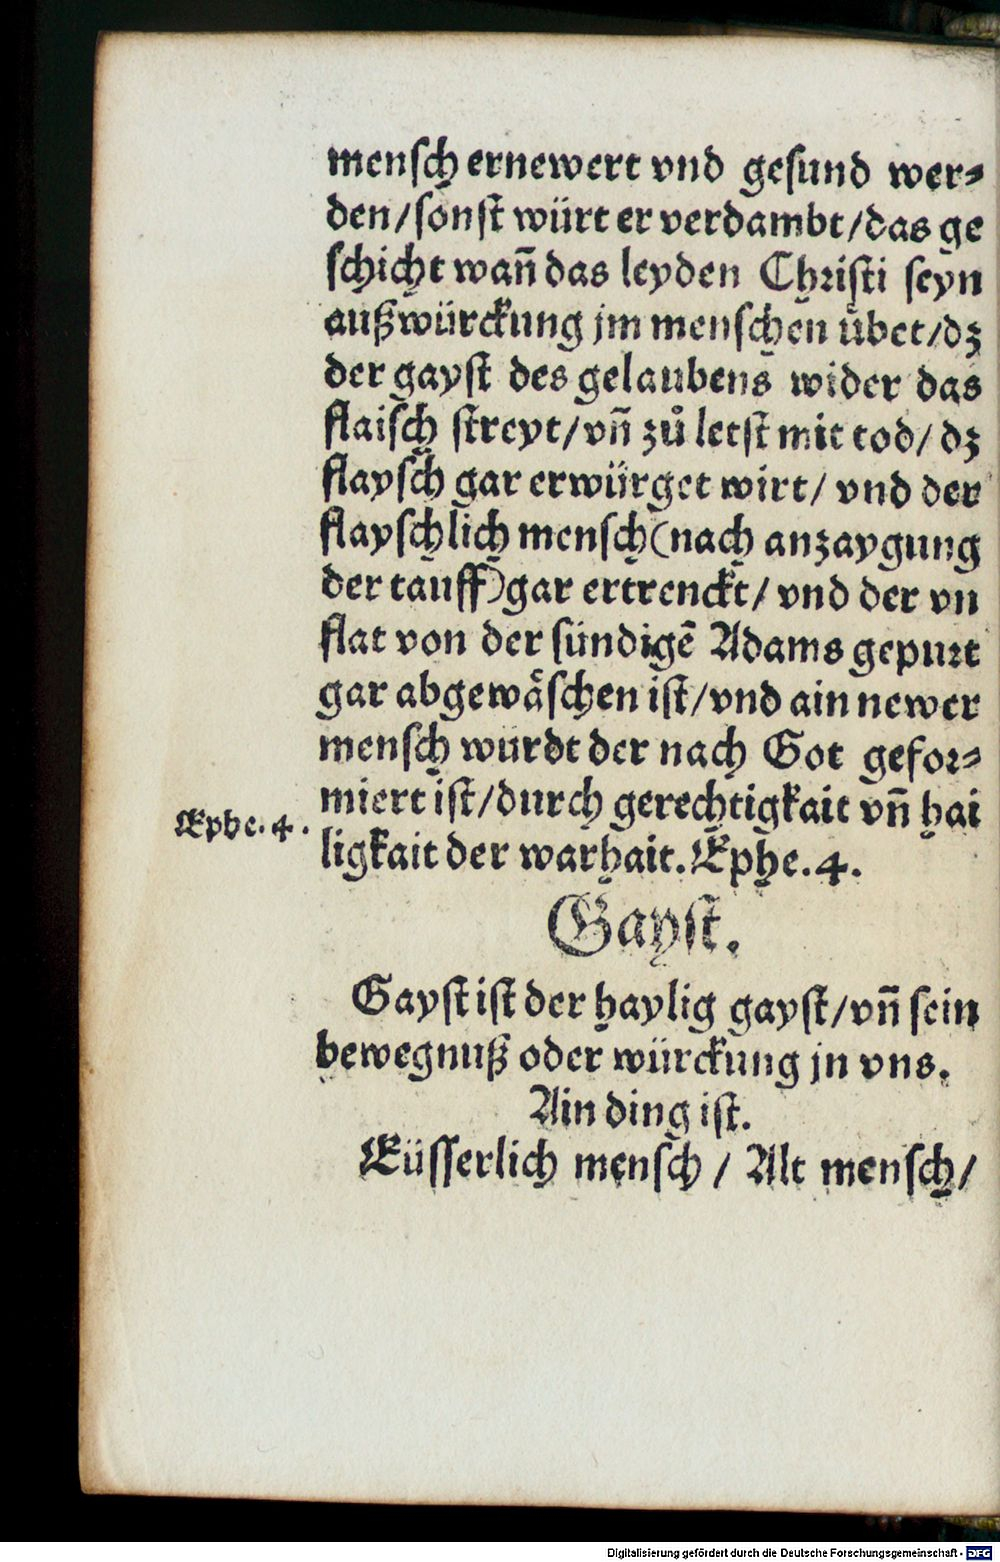 mensch ernewert vnd gesund wer-
den/sonst würt er verdambt/das ge
schicht wañ das leyden Christi seyn
außwürckung jm menschen übet/dz
der gayst des gelaubens wider das
flaisch streyt/vñ zů letst mit tod/dz
flaysch gar erwürget wirt/ vnd der
flayschlich mensch(nach anzaygung
der tauff)gar ertrenckt/ vnd der vn
flat von der sündigē Adams gepurt
gar abgewäschen ist/vnd ain newer
mensch wurdt der nach Got gefor-
miert ist/durch gerechtigkait vñ hai
Ephe.4.
ligkait der warhait.Ephe.4.
Gayst.
Gayst ist der haylig gayst/vñ sein
bewegnuß oder würckung jn vns.
Ain ding ist.
Eüsserlich mensch / Alt mensch/
Digitalisierung gefördert durch die Deutsche Forschungsgemeinschaft - DFG